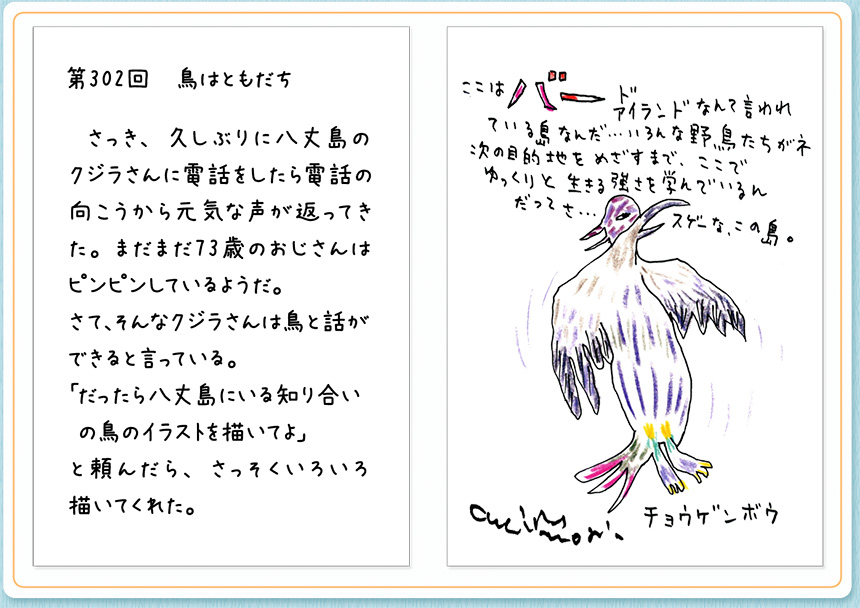 第302回　鳥はともだち
さっき、久しぶりに八丈島の
クジラさんに電話をしたら電話の
向こうから元気な声が返ってき
た。まだまだ73歳のおじさんは
ピンピンしているようだ。
さて、そんなクジラさんは鳥と話が
できると言っている。
「だったら八丈島にいる知り合い
の鳥のイラストを描いてよ」
と頼んだら、さっそくいろいろ
描いてくれた。
ここは バード
アイランドなんて言われ
ている島なんだ…いろんな野鳥たちがネ
次の目的地をめざすまで、ここで
ゆっくりと生きる強さを学んでいるん
だってさ…
スゲーな、この島。
チョウゲンボウ